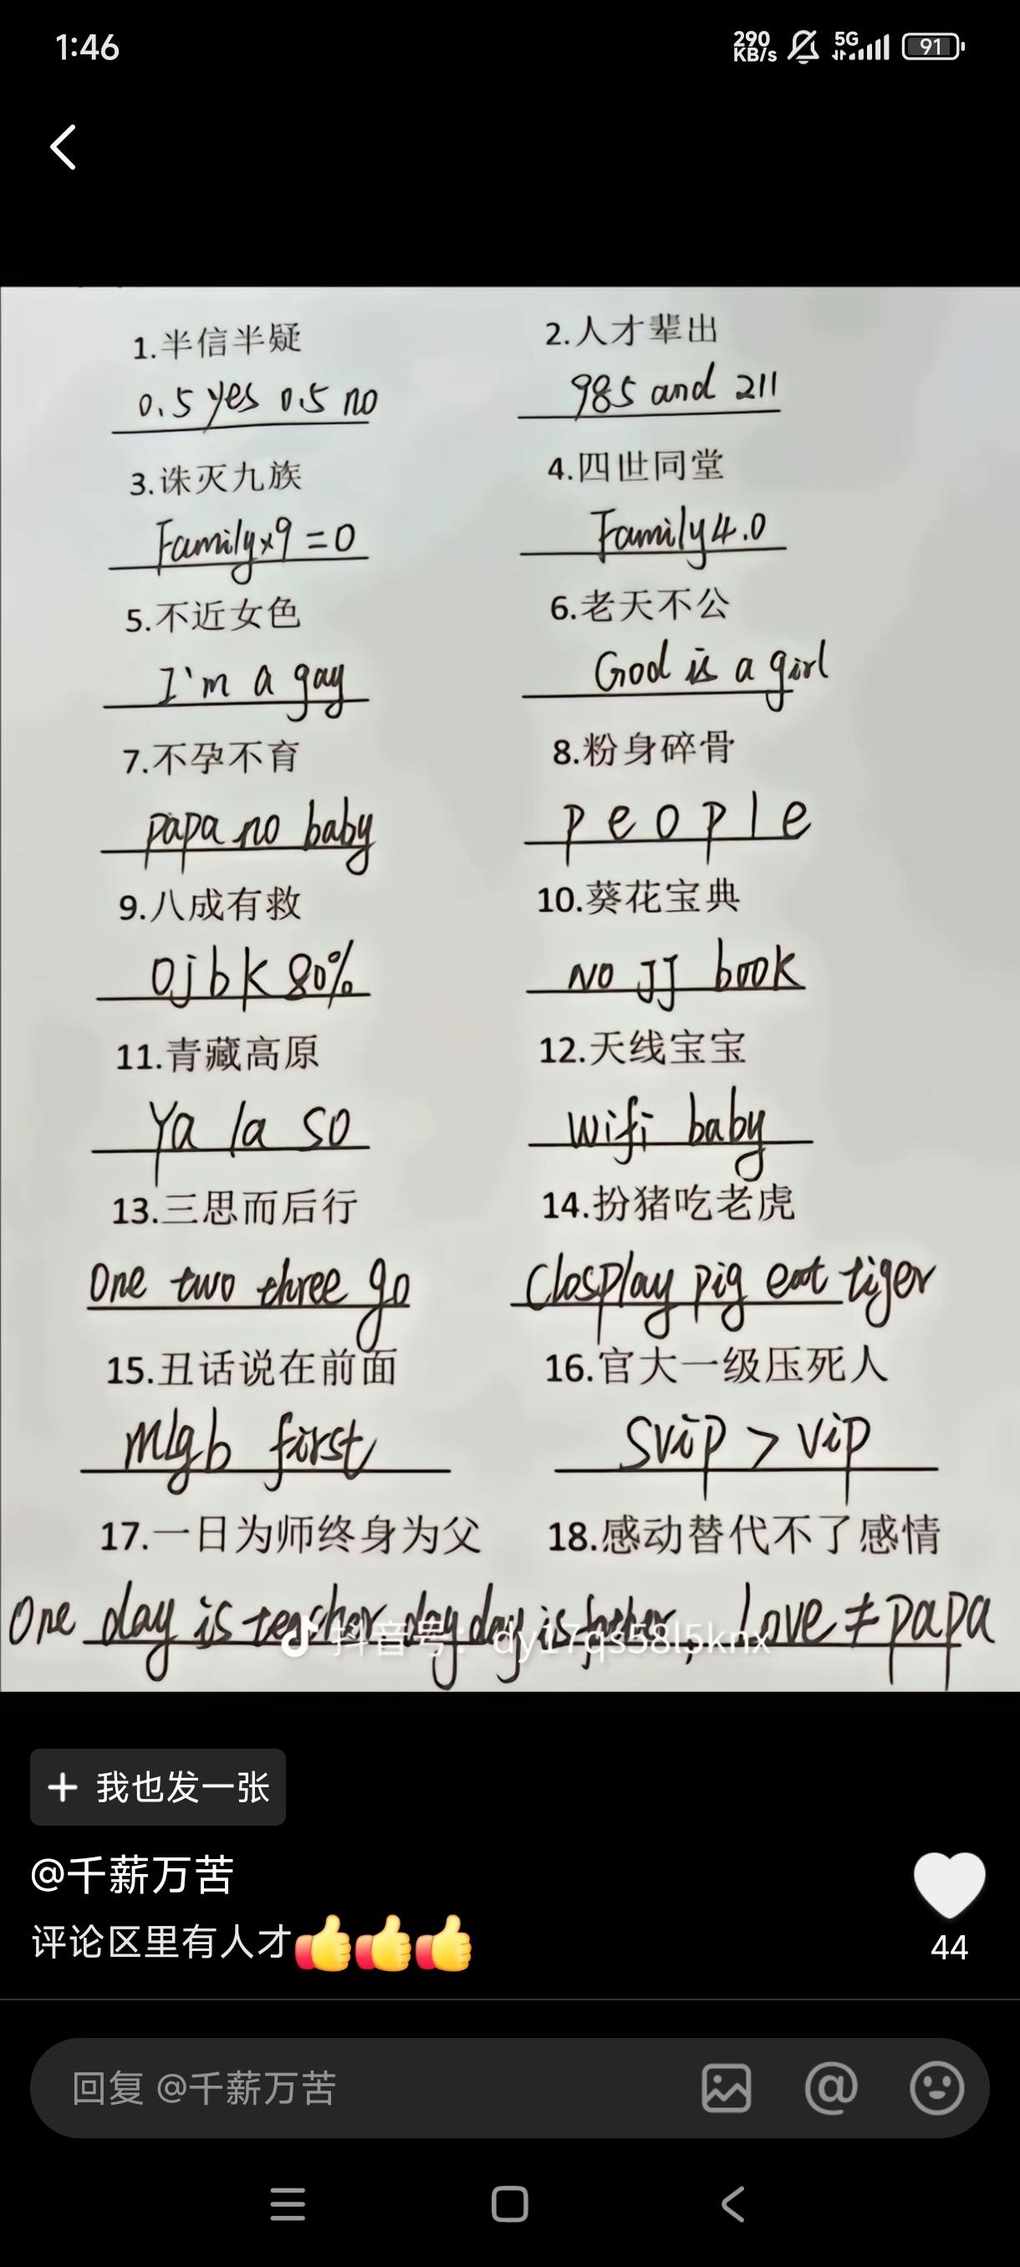 1:46
290 KB/s 5G 91
1.半信半疑 2.人才辈出
0.5 yes 0.5 no 985 and 211
3.诛灭九族 4.四世同堂
Family×9=0 Family4.0
5.不近女色 6.老天不公
I'm a gay God is a girl
7.不孕不育 8.粉身碎骨
papa no baby p e o p l e
9.八成有救 10.葵花宝典
Ojbk 80% NO JJ book
11.青藏高原 12.天线宝宝
Ya la so wifi baby
13.三思而后行 14.扮猪吃老虎
One two three go Closplay pig eat tiger
15.丑话说在前面 16.官大一级压死人
mlgb first svip > vip
17.一日为师终身为父 18.感动替代不了感情
One day is teacher,day day is father, Love≠papa
抖音号：dy17qs58l5knx
+ 我也发一张
@千薪万苦
评论区里有人才👍👍👍
44
回复 @千薪万苦